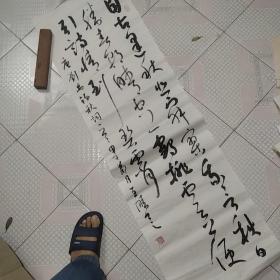 自古逢秋悲寂寥我言秋日
胜春朝晴空一鹤排云上便
引诗情到碧霄
唐刘禹锡秋词